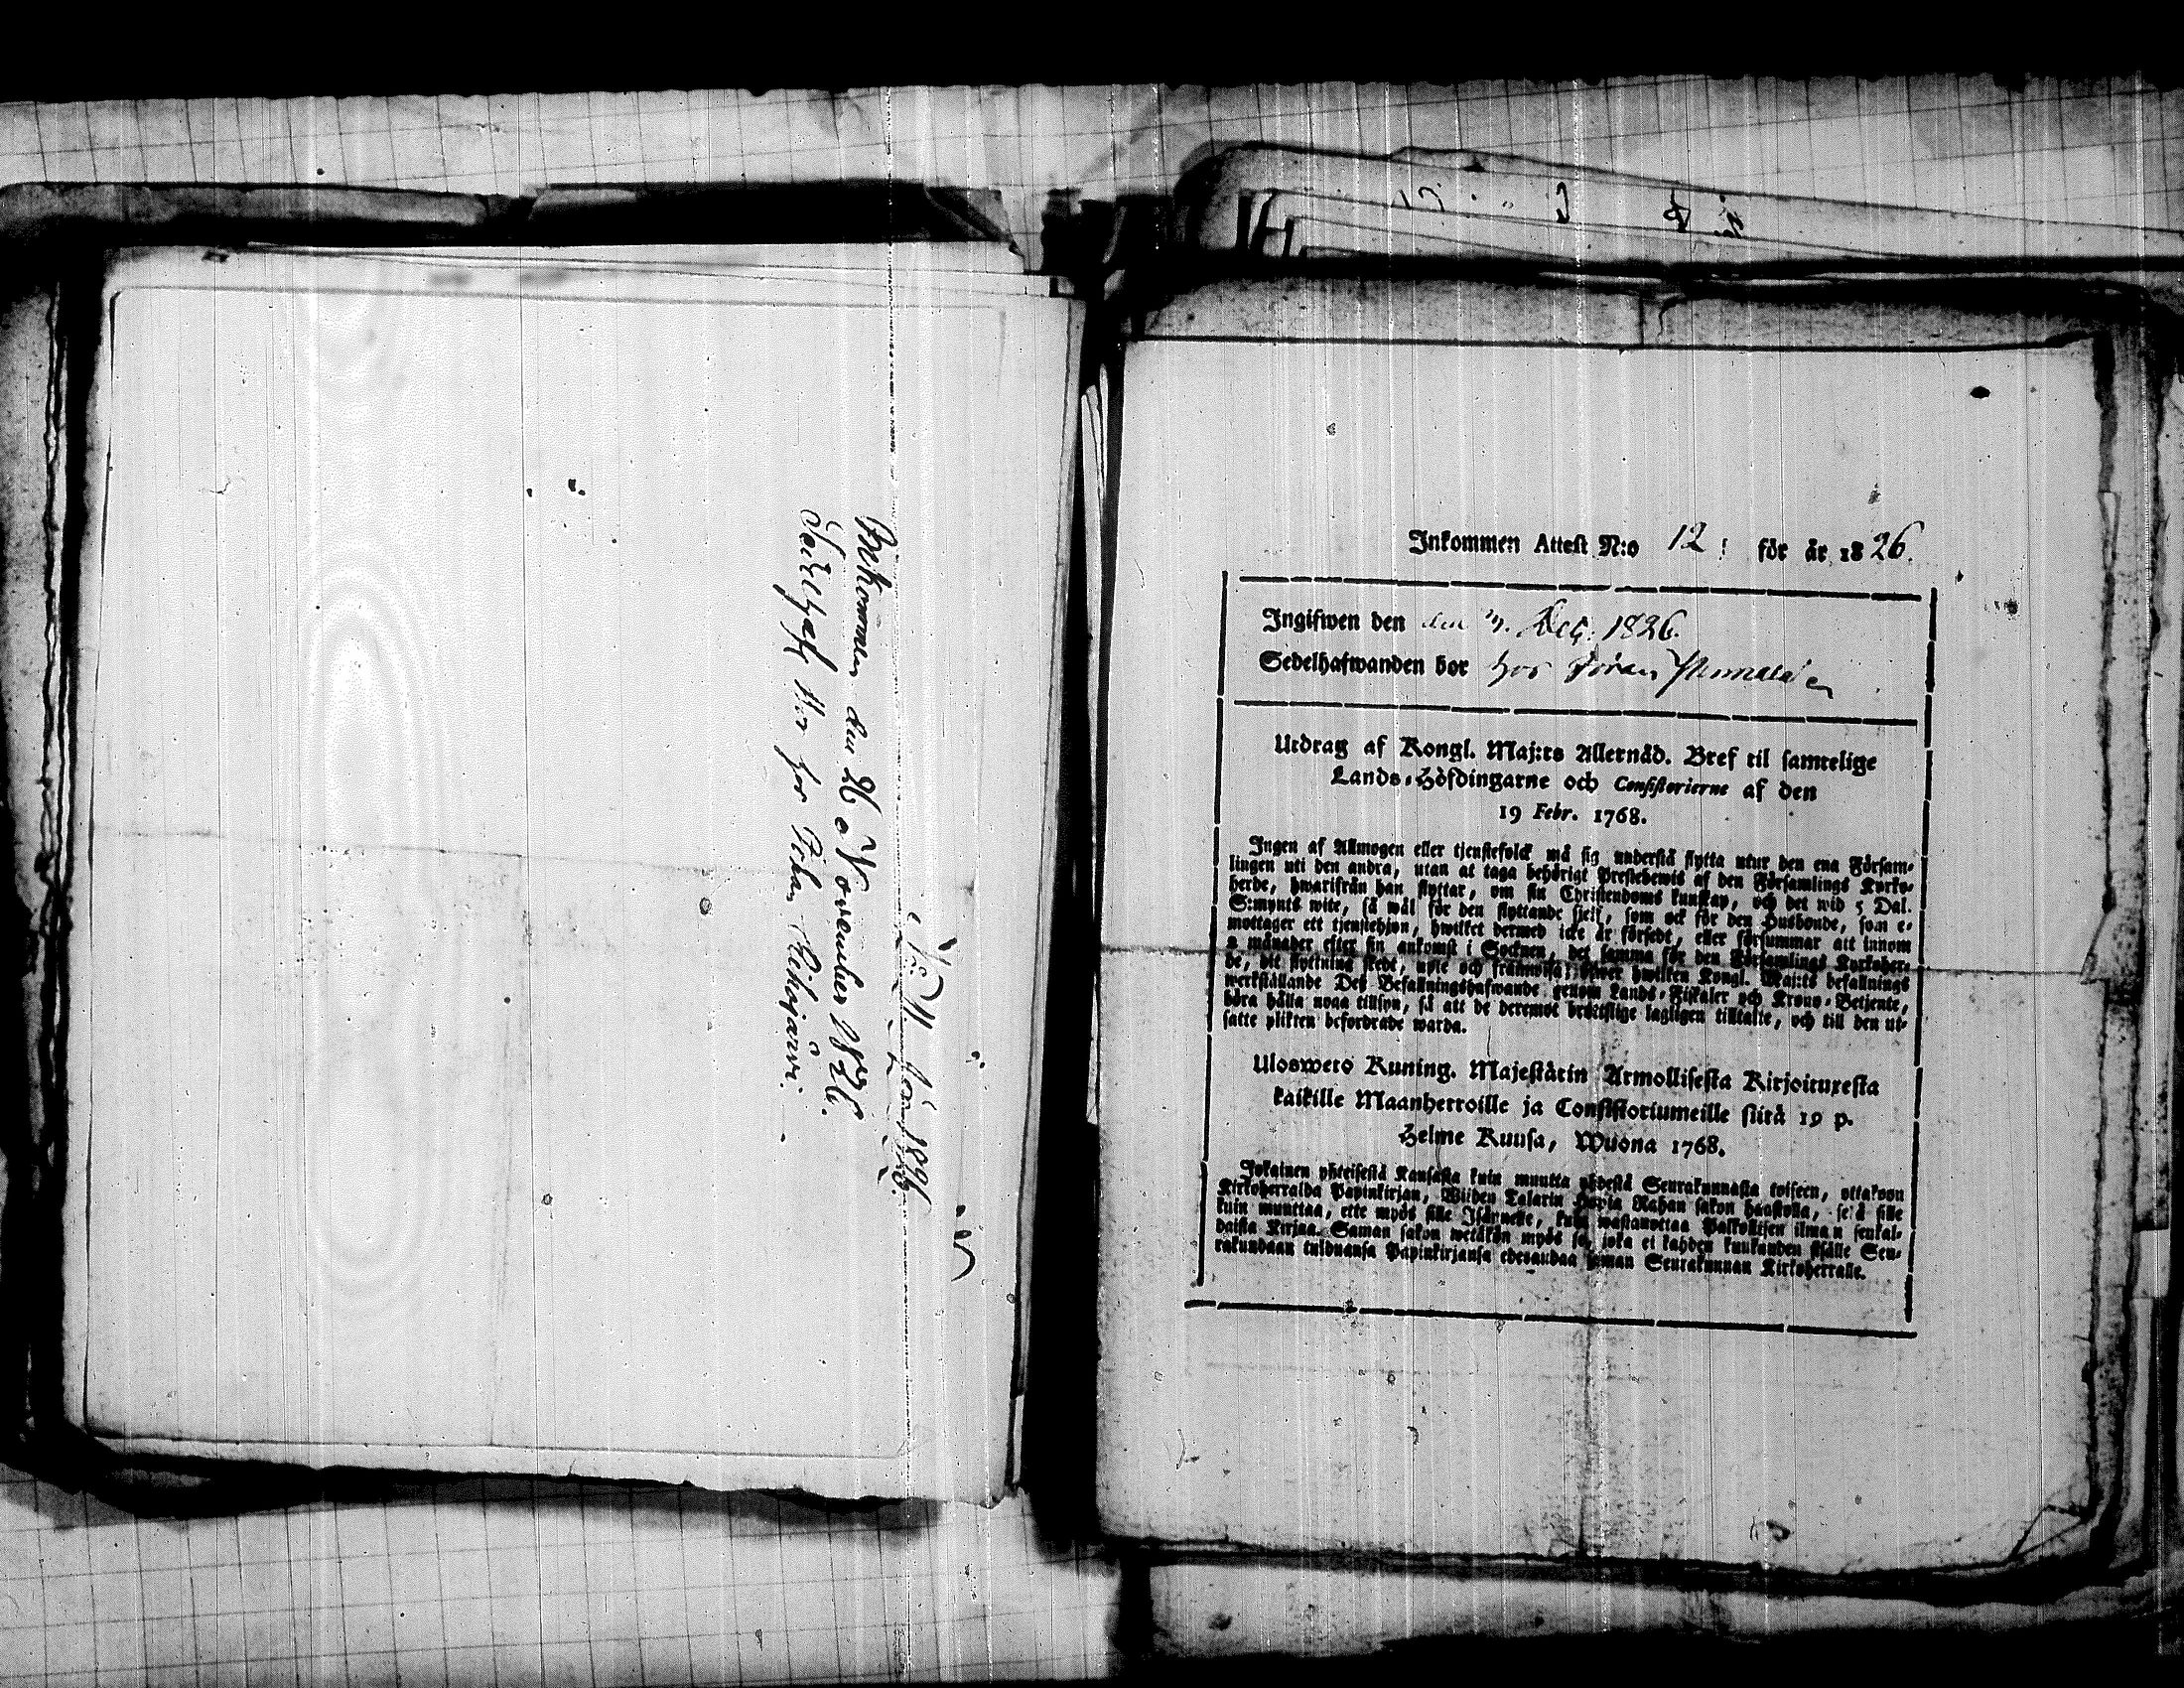 N:o 11. för 1826.
Inkommen den 26 November 1826.
för Johan Rihojärvi.
Inkommen Attest N:o 12: för år 1826.
Ingifwen den den 3. Dec: 1826.
Sedelhafwanden bor hos Jöran
Utdrag af Kongl. Maj:ts Allernåd. Bref til samtelige
Lands-Höfdingarne och Consistorierne af den
19 Febr. 1768.
Ingen af Allmogen eller tjenstefolck må sig understå flytta utur den ena Församlingen
uti den andra, utan at taga behörigt Prestebewis af den Församlings Kyrko-
herde, hwarifrån han flyttar, om sin Christendoms kunskap, och det wid 5 Dal.
S:mynts wite, så wäl för den flyttande sjelf, som ock för den Husbonde, som e-
mottager ett tjenstehjon, hwilket dermed icke är försedt, eller försummar att innom
2 månader efter sin ankomst i Socknen, det samma för den Församlings Kyrkoher-
de, dit flyttning skedt, upte och framwisa; öfwer hwilken Kongl. Maj:ts befallnings
werkställande Deß Befallningshafwande genom Lands-Fiskaler och Krono-Betjente,
böra hålla noga tillsyn, så att de deremot brottslige lagligen tilltalte, och till den ut-
satte plikten befordrade warda.
Ulosweto Kuning. Majestätin Armollisesta Kirjoituxesta
kaikille Maanherroille ja Consistoriumeille siitä 19 p.
Helme Kuusa, Wuona 1768.
Jokainen yhteisestä Kansasta kuin muutta yhdestä Seurakunnasta toiseen, ottakoon
Kirkoherralda Papinkirjan, Wiiden Talarin Hopia Rahan sakon haastolla, sekä sille
kuin muuttaa, ette myös sille Isännelle, kuin wastanottaa Palkollisen ilman senkal-
daista Kirjaa. Saman sakon wetäkön myös se, joka ei kahden kuukauden sisälle Seu-
rakundaan tulduansa Papinkirjansa edesandaa saman Seurakunnan Kirkoherralle.